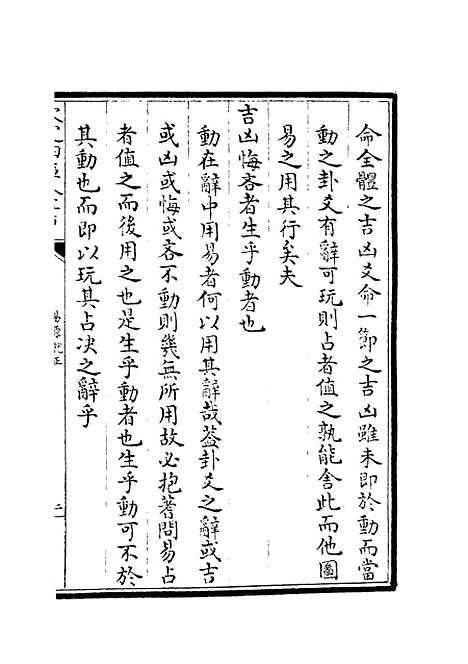 命全體之吉凶爻命一節之吉凶雖未即於動而當
動之卦爻有辭可玩則占者值之孰能舍此而他圖
易之用其行矣夫
吉凶悔吝者生乎動者也
動在辭中用易者何以用其辭哉葢卦爻之辭或吉
或凶或悔或吝不動則幾無所用故必抱蓍問易占
者值之而後用之也是生乎動者也生乎動可不於
其動也而即以玩其占决之辭乎